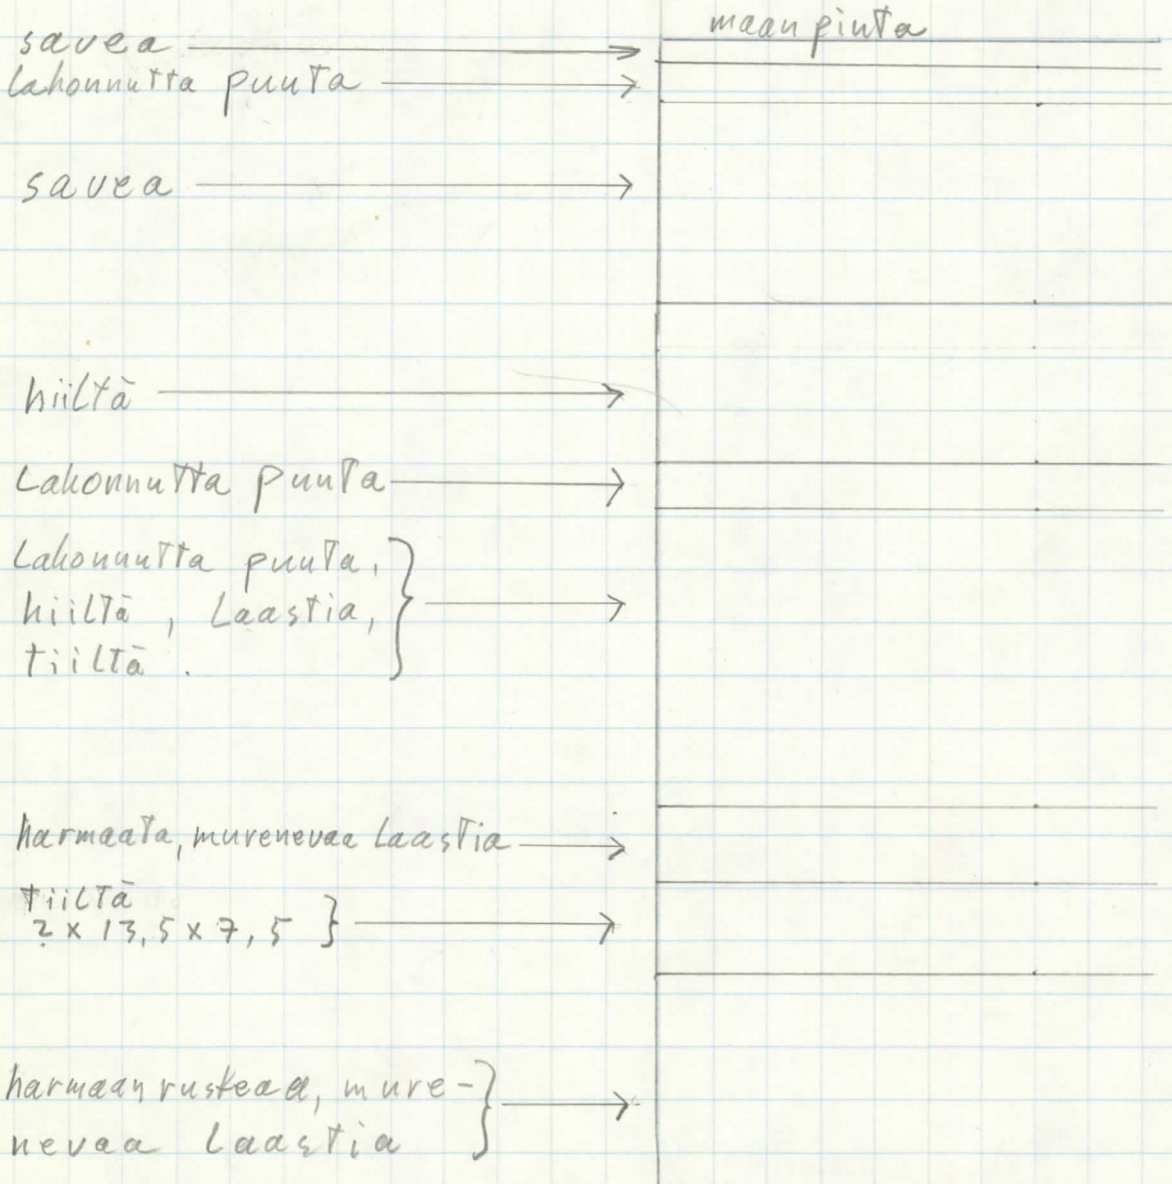 maan pinta
savea
lahonnutta puuta
savea
hiiltä
Lahonnutta puuta
Lahonnutta puuta,
hiiltä, Laastia,
tiiltä.
harmaata, murenevaa Laastia
tiiltä
? x 13,5 x 7,5
harmaanruskeaa, mure-
nevaa Laastia